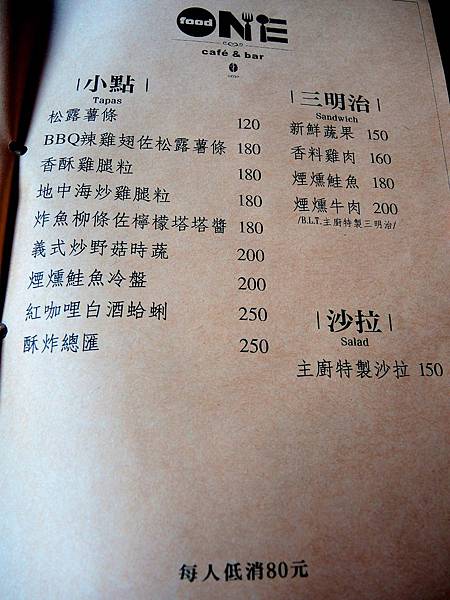 food ONE
café & bar
小點
Tapas
松露薯條 120
BBQ辣雞翅佐松露薯條 180
香酥雞腿粒 180
地中海炒雞腿粒 180
炸魚柳條佐檸檬塔塔醬 180
義式炒野菇時蔬 200
煙燻鮭魚冷盤 200
紅咖哩白酒蛤蜊 250
酥炸總匯 250
三明治
Sandwich
新鮮蔬果 150
香料雞肉 160
煙燻鮭魚 180
煙燻牛肉 200
/B.L.T.主廚特製三明治/
沙拉
Salad
主廚特製沙拉 150
每人低消80元